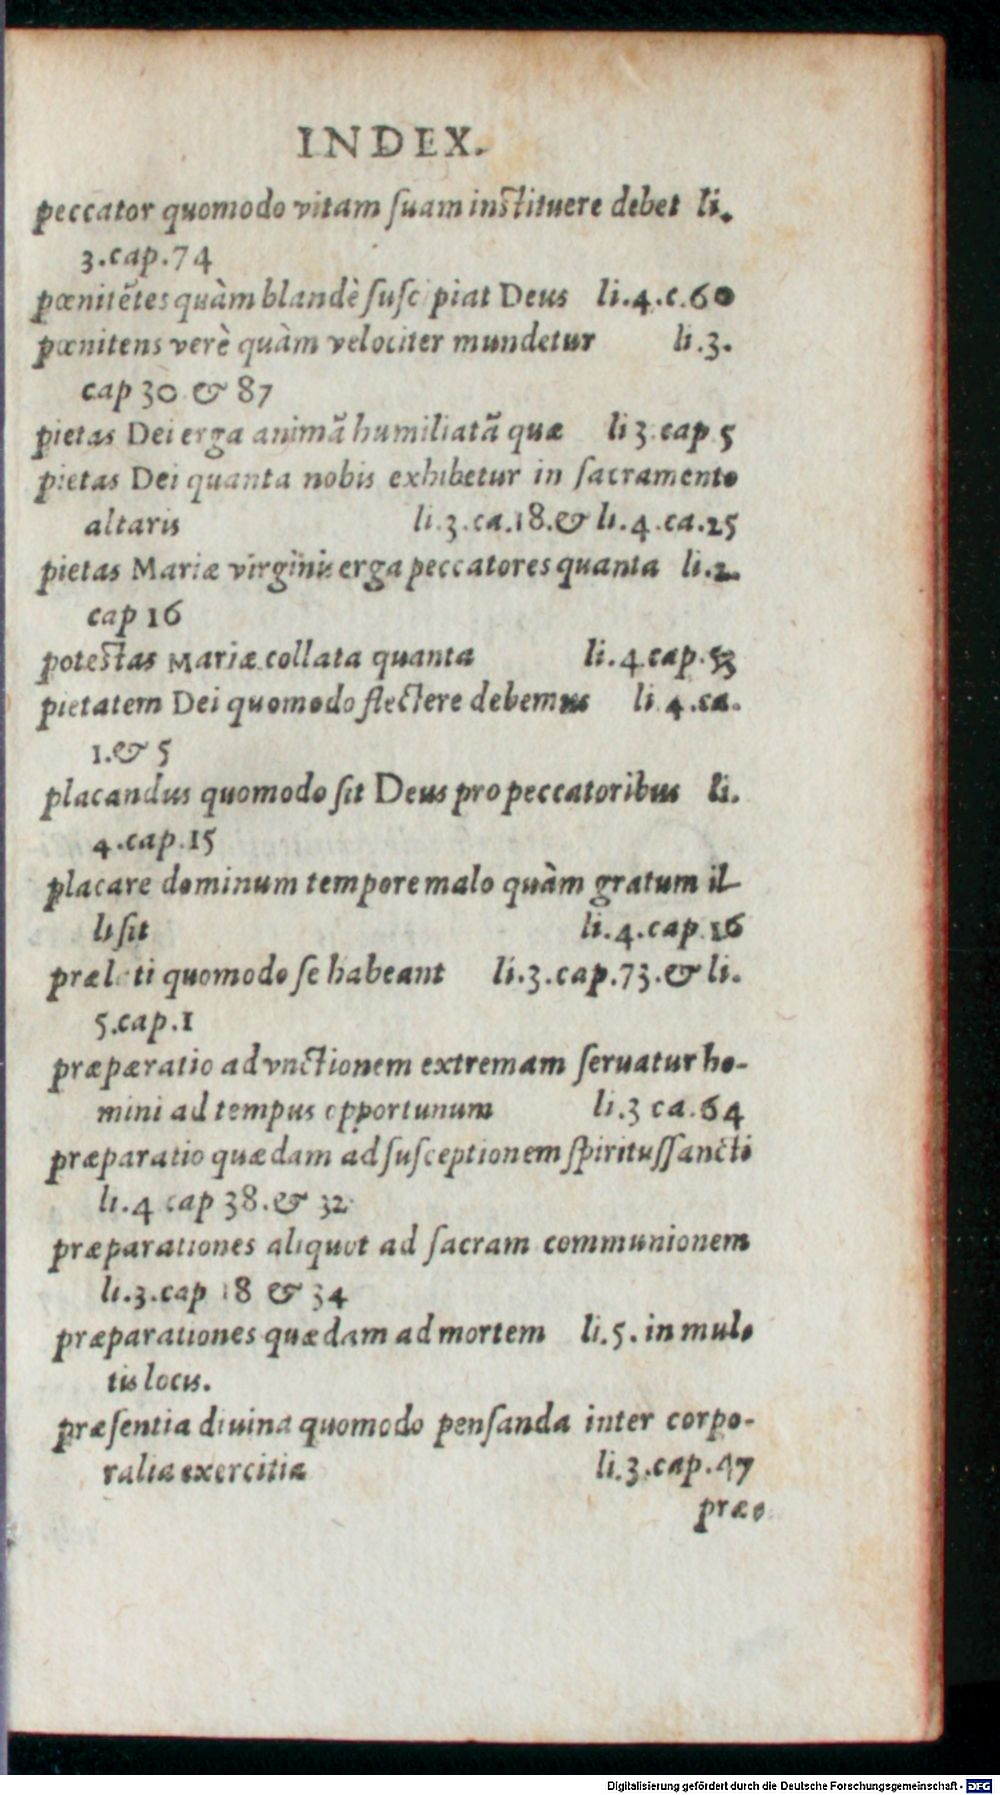 INDEX.
peccator quomodo vitam ſuam inſtituere debet li.
3.cap.74
pœnitẽtes quàm blandè ſuſcipiat Deus li.4.c.60
pœnitens verè quàm velociter mundetur li.3.
cap 30 & 87
pietas Dei erga animã humiliatã quæ li 3.cap 5
pietas Dei quanta nobis exhibetur in ſacramento
altaris li.3.ca.18.& li.4.ca.25
pietas Mariæ virginis erga peccatores quanta li.2.
cap 16
poteſtas Mariæ collata quanta li.4 cap.53
pietatem Dei quomodo flectere debemus li.4.ca.
1.& 5
placandus quomodo ſit Deus pro peccatoribus li.
4.cap.15
placare dominum tempore malo quàm gratum il-
li ſit li.4.cap.16
prælati quomodo ſe habeant li.3.cap.73.& li.
5.cap.1
præpæratio ad vnctionem extremam ſeruatur ho-
mini ad tempus opportunum li.3 ca.64
præparatio quædam ad ſuſceptionem ſpirituſſancti
li.4 cap 38.& 32
præparationes aliquot ad ſacram communionem
li.3.cap 18 & 34
præparationes quædam ad mortem li.5.in mul-
tis locis.
præſentia diuina quomodo penſanda inter corpo-
ralia exercitia li.3.cap.47
præ-
Digitalisierung gefördert durch die Deutsche Forschungsgemeinschaft - DFG